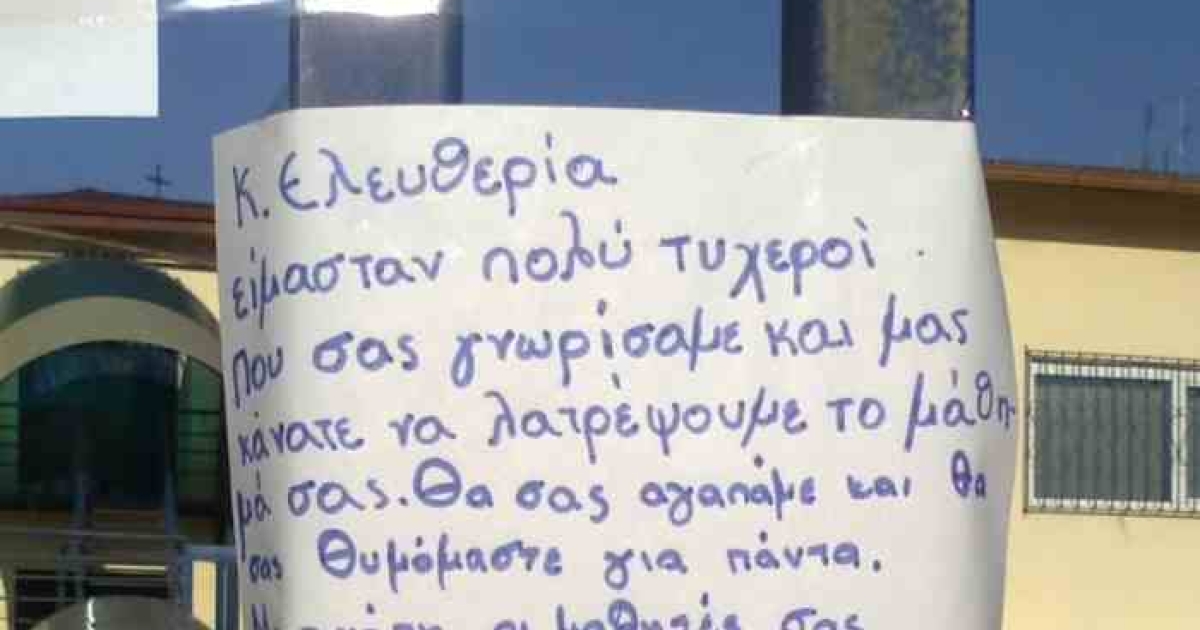 Κ. Ελευθερία
είμασταν πολύ τυχεροί
που σας γνωρίσαμε και μας
κάνατε να λατρέψουμε το μάθη-
μά σας. Θα σας αγαπάμε και θα
σας θυμόμαστε για πάντα.
οι μαθητές σας